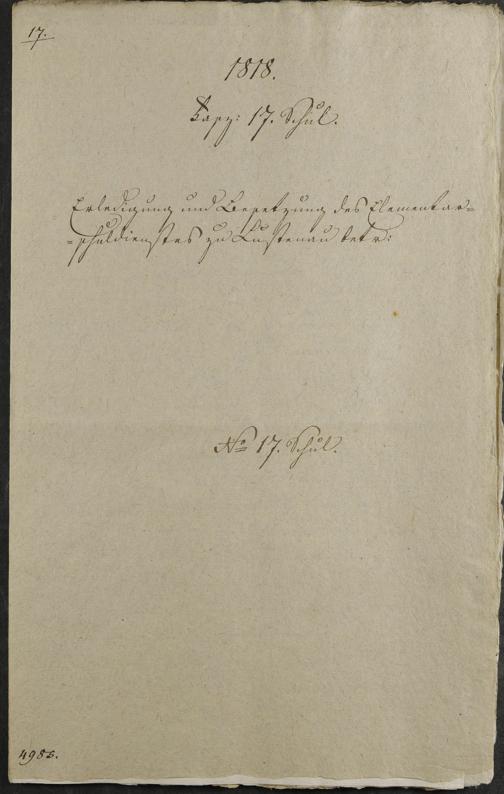 17.
1818.
Fasz: 17. Schul.
Erledigung und Besetzung des Elementar=
=schuldienstes zu Lustenau betr:
No 17. Schul.